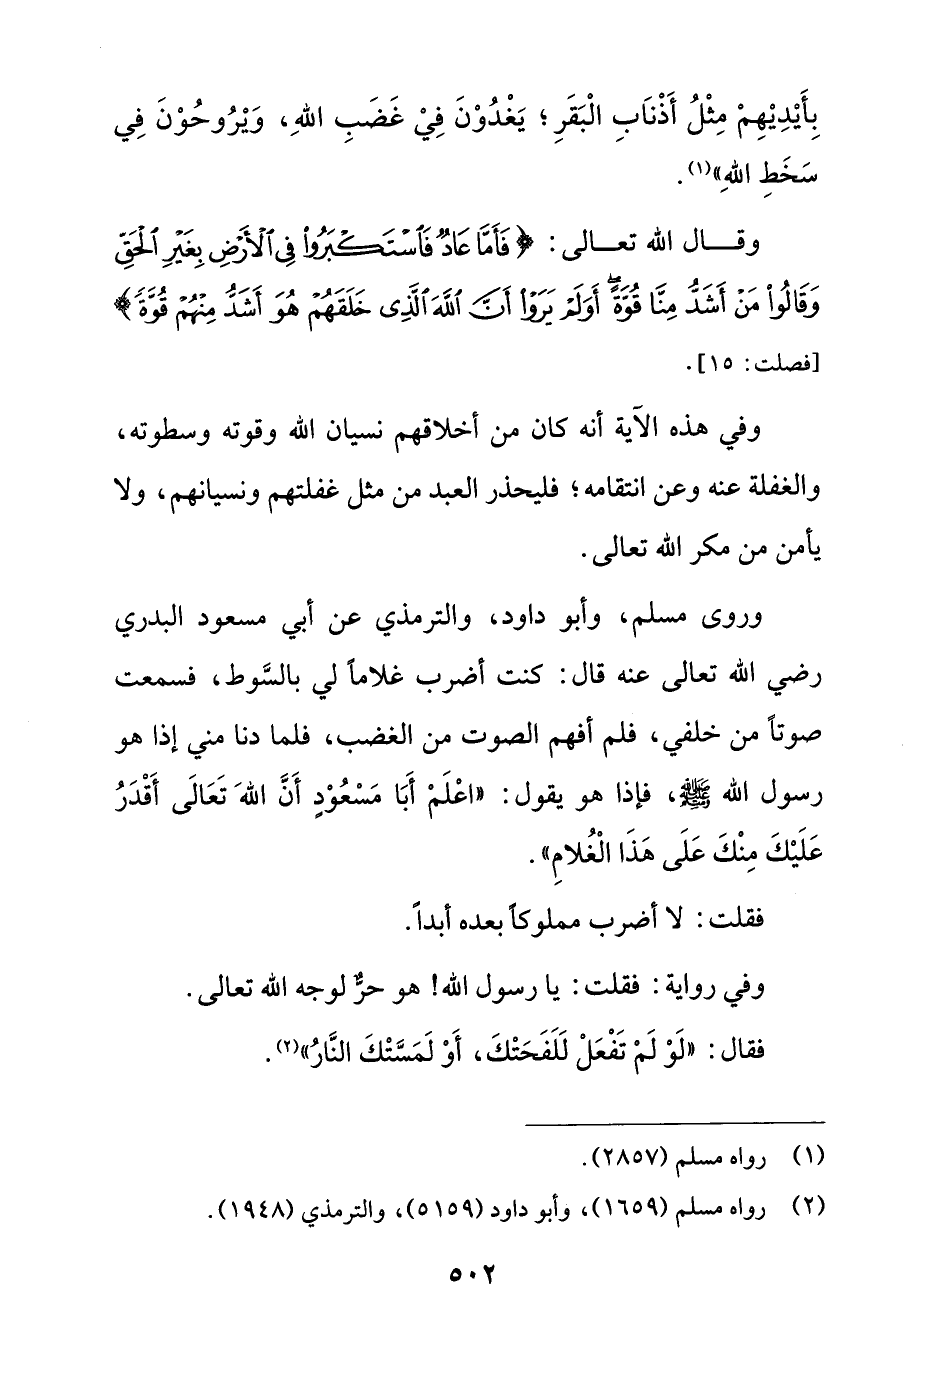 بِأَيْدِيْهِمْ مِثْلُ أَذْنَابِ الْبَقَرِ ؛ يَغْدُوْنَ فِيْ غَضَبِ اللهِ، وَيْرُوحُوْنَ فِي
سَخَطِ اللهِ»(١).
وقـــال الله تعـــالى: ﴿فَأَمَّا عَادٌ فَٱسْتَكْبَرُوا۟ فِى ٱلْأَرْضِ بِغَيْرِ ٱلْحَقِّ
وَقَالُوا۟ مَنْ أَشَدُّ مِنَّا قُوَّةً ۖ أَوَلَمْ يَرَوْا۟ أَنَّ ٱللَّهَ ٱلَّذِى خَلَقَهُمْ هُوَ أَشَدُّ مِنْهُمْ قُوَّةً﴾
[فصلت: ١٥].
وفي هذه الآية أنه كان من أخلاقهم نسيان الله وقوته وسطوته،
والغفلة عنه وعن انتقامه؛ فليحذر العبد من مثل غفلتهم ونسيانهم، ولا
يأمن من مكر الله تعالى.
وروى مسلم، وأبو داود، والترمذي عن أبي مسعود البدري
رضي الله تعالى عنه قال: كنت أضرب غلاماً لي بالسَّوط، فسمعت
صوتاً من خلفي، فلم أفهم الصوت من الغضب، فلما دنا مني إذا هو
رسول الله ﷺ، فإذا هو يقول: «اعْلَمْ أَبَا مَسْعُوْدٍ أَنَّ اللهَ تَعَالَى أَقْدَرُ
عَلَيْكَ مِنْكَ عَلَى هَذَا الْغُلامِ».
فقلت: لا أضرب مملوكاً بعده أبداً.
وفي رواية: فقلت: يا رسول الله! هو حرٌّ لوجه الله تعالى.
فقال: «لَوْ لَمْ تَفْعَلْ لَلَفَحَتْكَ، أَوْ لَمَسَّتْكَ النَّارُ»(٢).
(١) رواه مسلم (٢٨٥٧).
(٢) رواه مسلم (١٦٥٩)، وأبو داود (٥١٥٩)، والترمذي (١٩٤٨).
٥٠٢